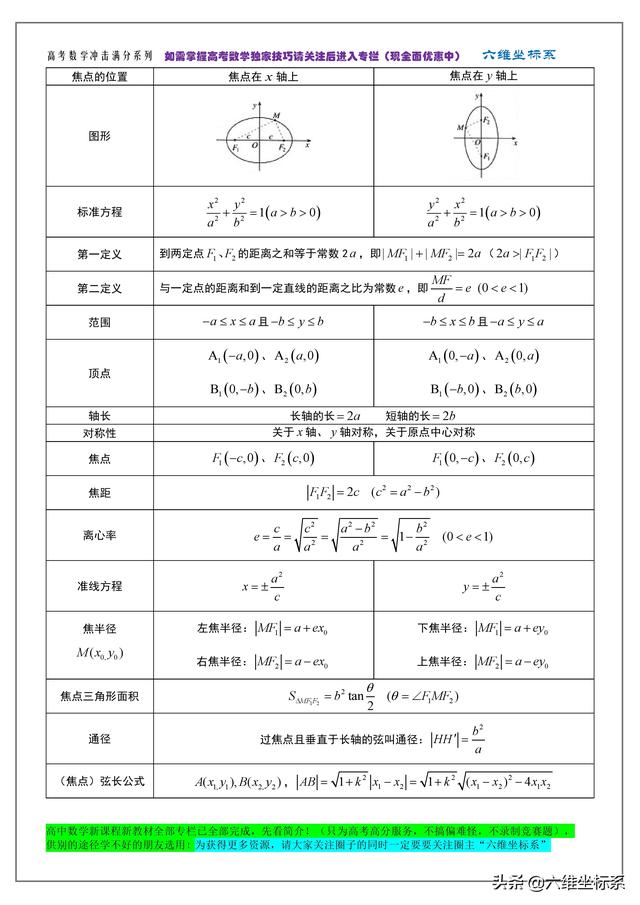 高考数学冲击满分系列 如需掌握高考数学独家技巧请关注后进入专栏(现全面优惠中) 六维坐标系
焦点的位置 焦点在 x 轴上 焦点在 y 轴上
图形 y M c c F₁ O F₂ x y F₂ M O x F₁
标准方程 x²/a² + y²/b² = 1(a > b > 0) y²/a² + x²/b² = 1(a > b > 0)
第一定义 到两定点 F₁、F₂ 的距离之和等于常数 2a,即|MF₁| + |MF₂| = 2a (2a >|F₁F₂|)
第二定义 与一定点的距离和到一定直线的距离之比为常数 e,即 MF/d = e (0 < e < 1)
范围 −a ≤ x ≤ a 且 −b ≤ y ≤ b −b ≤ x ≤ b 且 −a ≤ y ≤ a
顶点 A₁(−a,0)、A₂(a,0) A₁(0,−a)、A₂(0,a)
B₁(0,−b)、B₂(0,b) B₁(−b,0)、B₂(b,0)
轴长 长轴的长 = 2a 短轴的长 = 2b
对称性 关于 x 轴、y 轴对称,关于原点中心对称
焦点 F₁(−c,0)、F₂(c,0) F₁(0,−c)、F₂(0,c)
焦距 |F₁F₂| = 2c (c² = a² − b²)
离心率 e = c/a = √(c²/a²) = √((a² − b²)/a²) = √(1 − b²/a²) (0 < e < 1)
准线方程 x = ± a²/c y = ± a²/c
焦半径 左焦半径:|MF₁| = a + ex₀ 下焦半径:|MF₁| = a + ey₀
M(x₀,y₀) 右焦半径:|MF₂| = a − ex₀ 上焦半径:|MF₂| = a − ey₀
焦点三角形面积 S△MF₁F₂ = b² tan θ/2 (θ = ∠F₁MF₂)
通径 过焦点且垂直于长轴的弦叫通径:|HH′| = b²/a
(焦点)弦长公式 A(x₁,y₁),B(x₂,y₂),|AB| = √(1 + k²)|x₁ − x₂| = √(1 + k²)√((x₁ − x₂)² − 4x₁x₂)
高中数学新课程新教材全部专栏已全部完成,先看简介!(只为高考高分服务,不搞偏难怪,不录制竞赛题),
供别的途径学不好的朋友选用!为获得更多资源,请大家关注圈子的同时一定要要关注圈主“六维坐标系”
头条 @六维坐标系